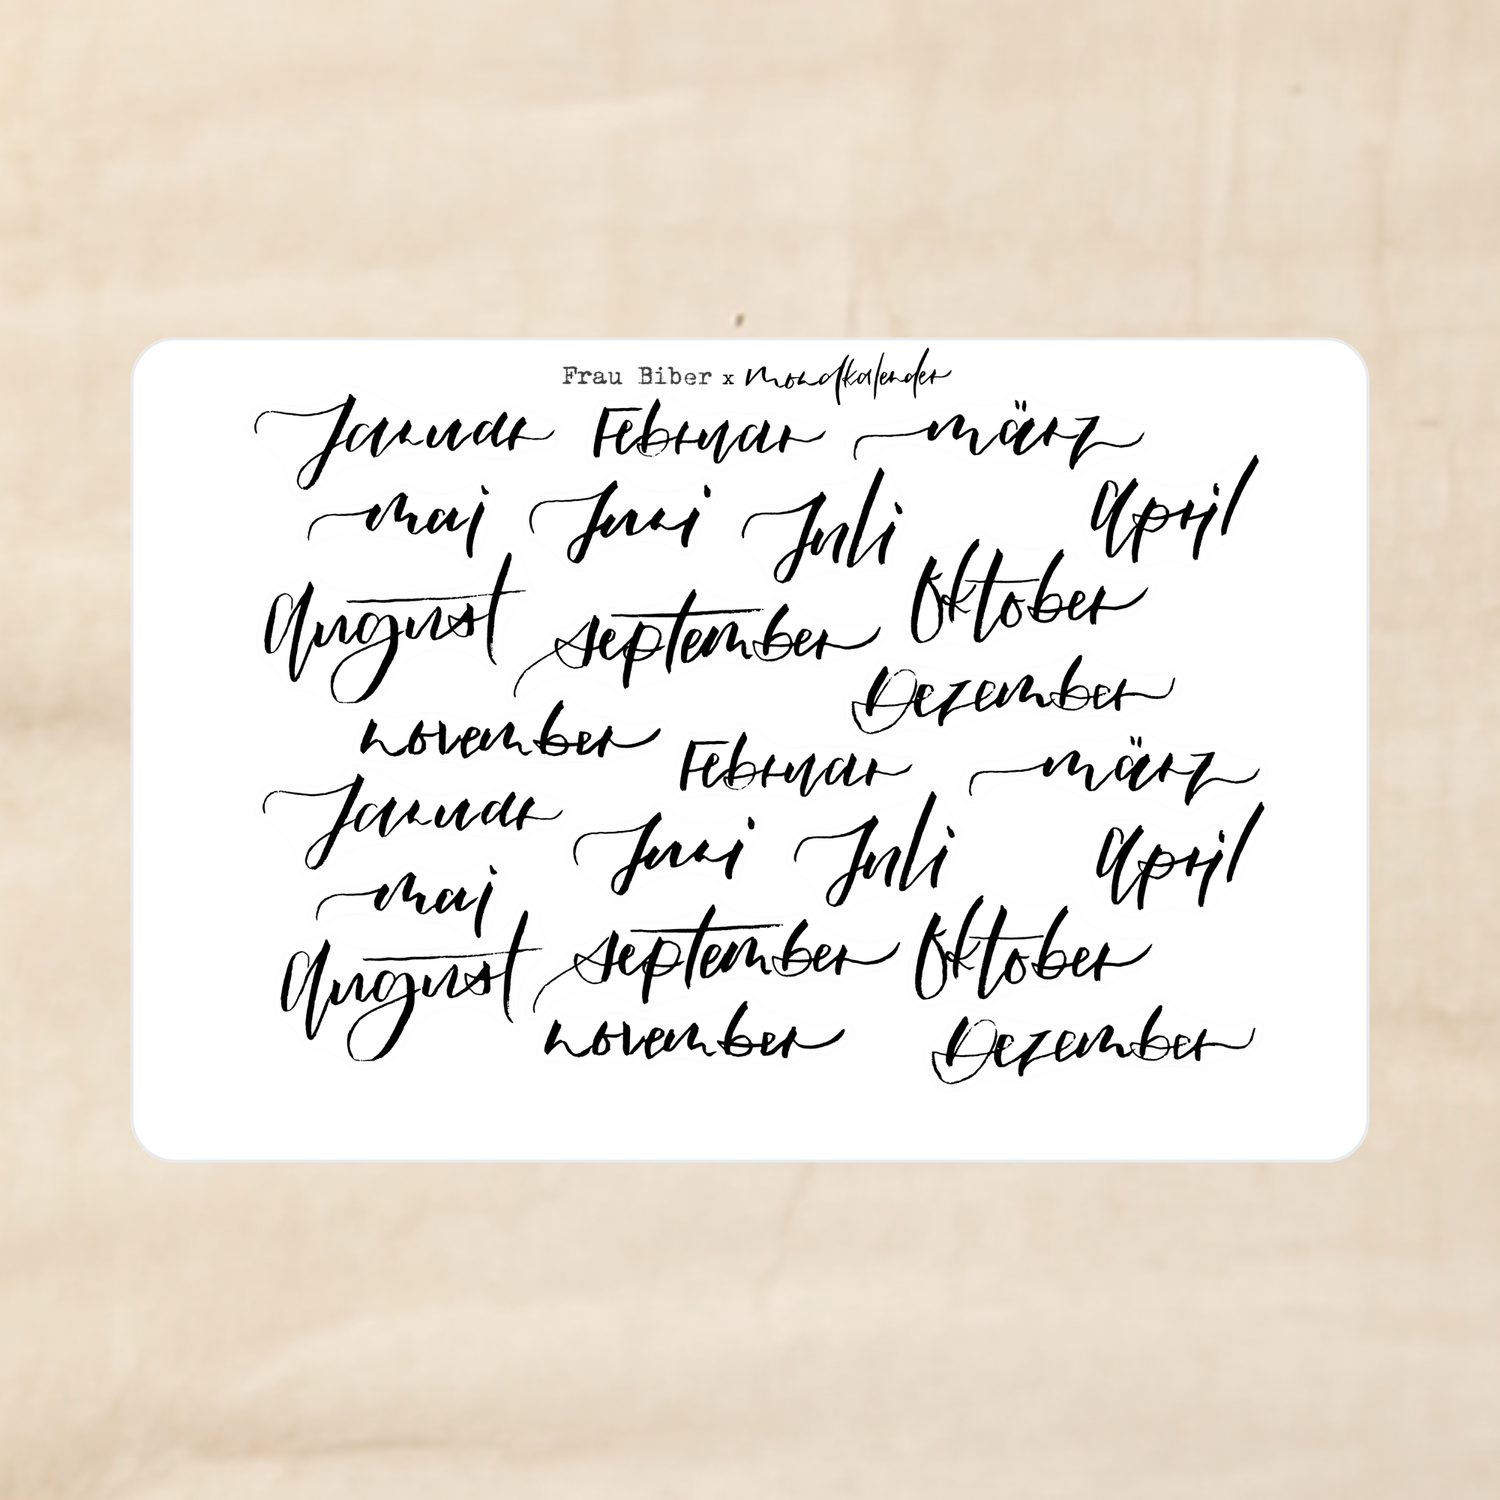 Frau Biber x mondkalender
Januar Februar märz
mai Juni Juli April
August september Oktober
Dezember
november
Februar märz
Januar
Juni Juli April
mai
August september Oktober
november Dezember